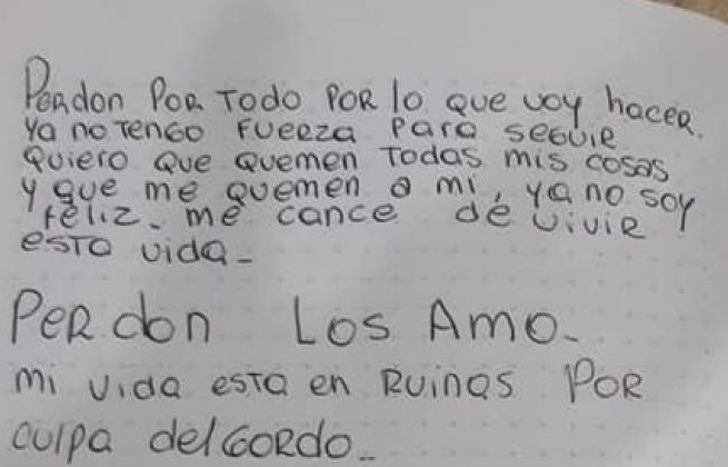 Perdon Por Todo Por lo que voy hacer.
Ya no Tengo Fuerza Para seguir
Quiero Que Quemen Todas mis cosas
y que me quemen a mi, ya no soy
feliz. me cance de vivir
esta vida-
Perdon Los Amo.
mi vida esta en Ruinas Por
culpa del Gordo-